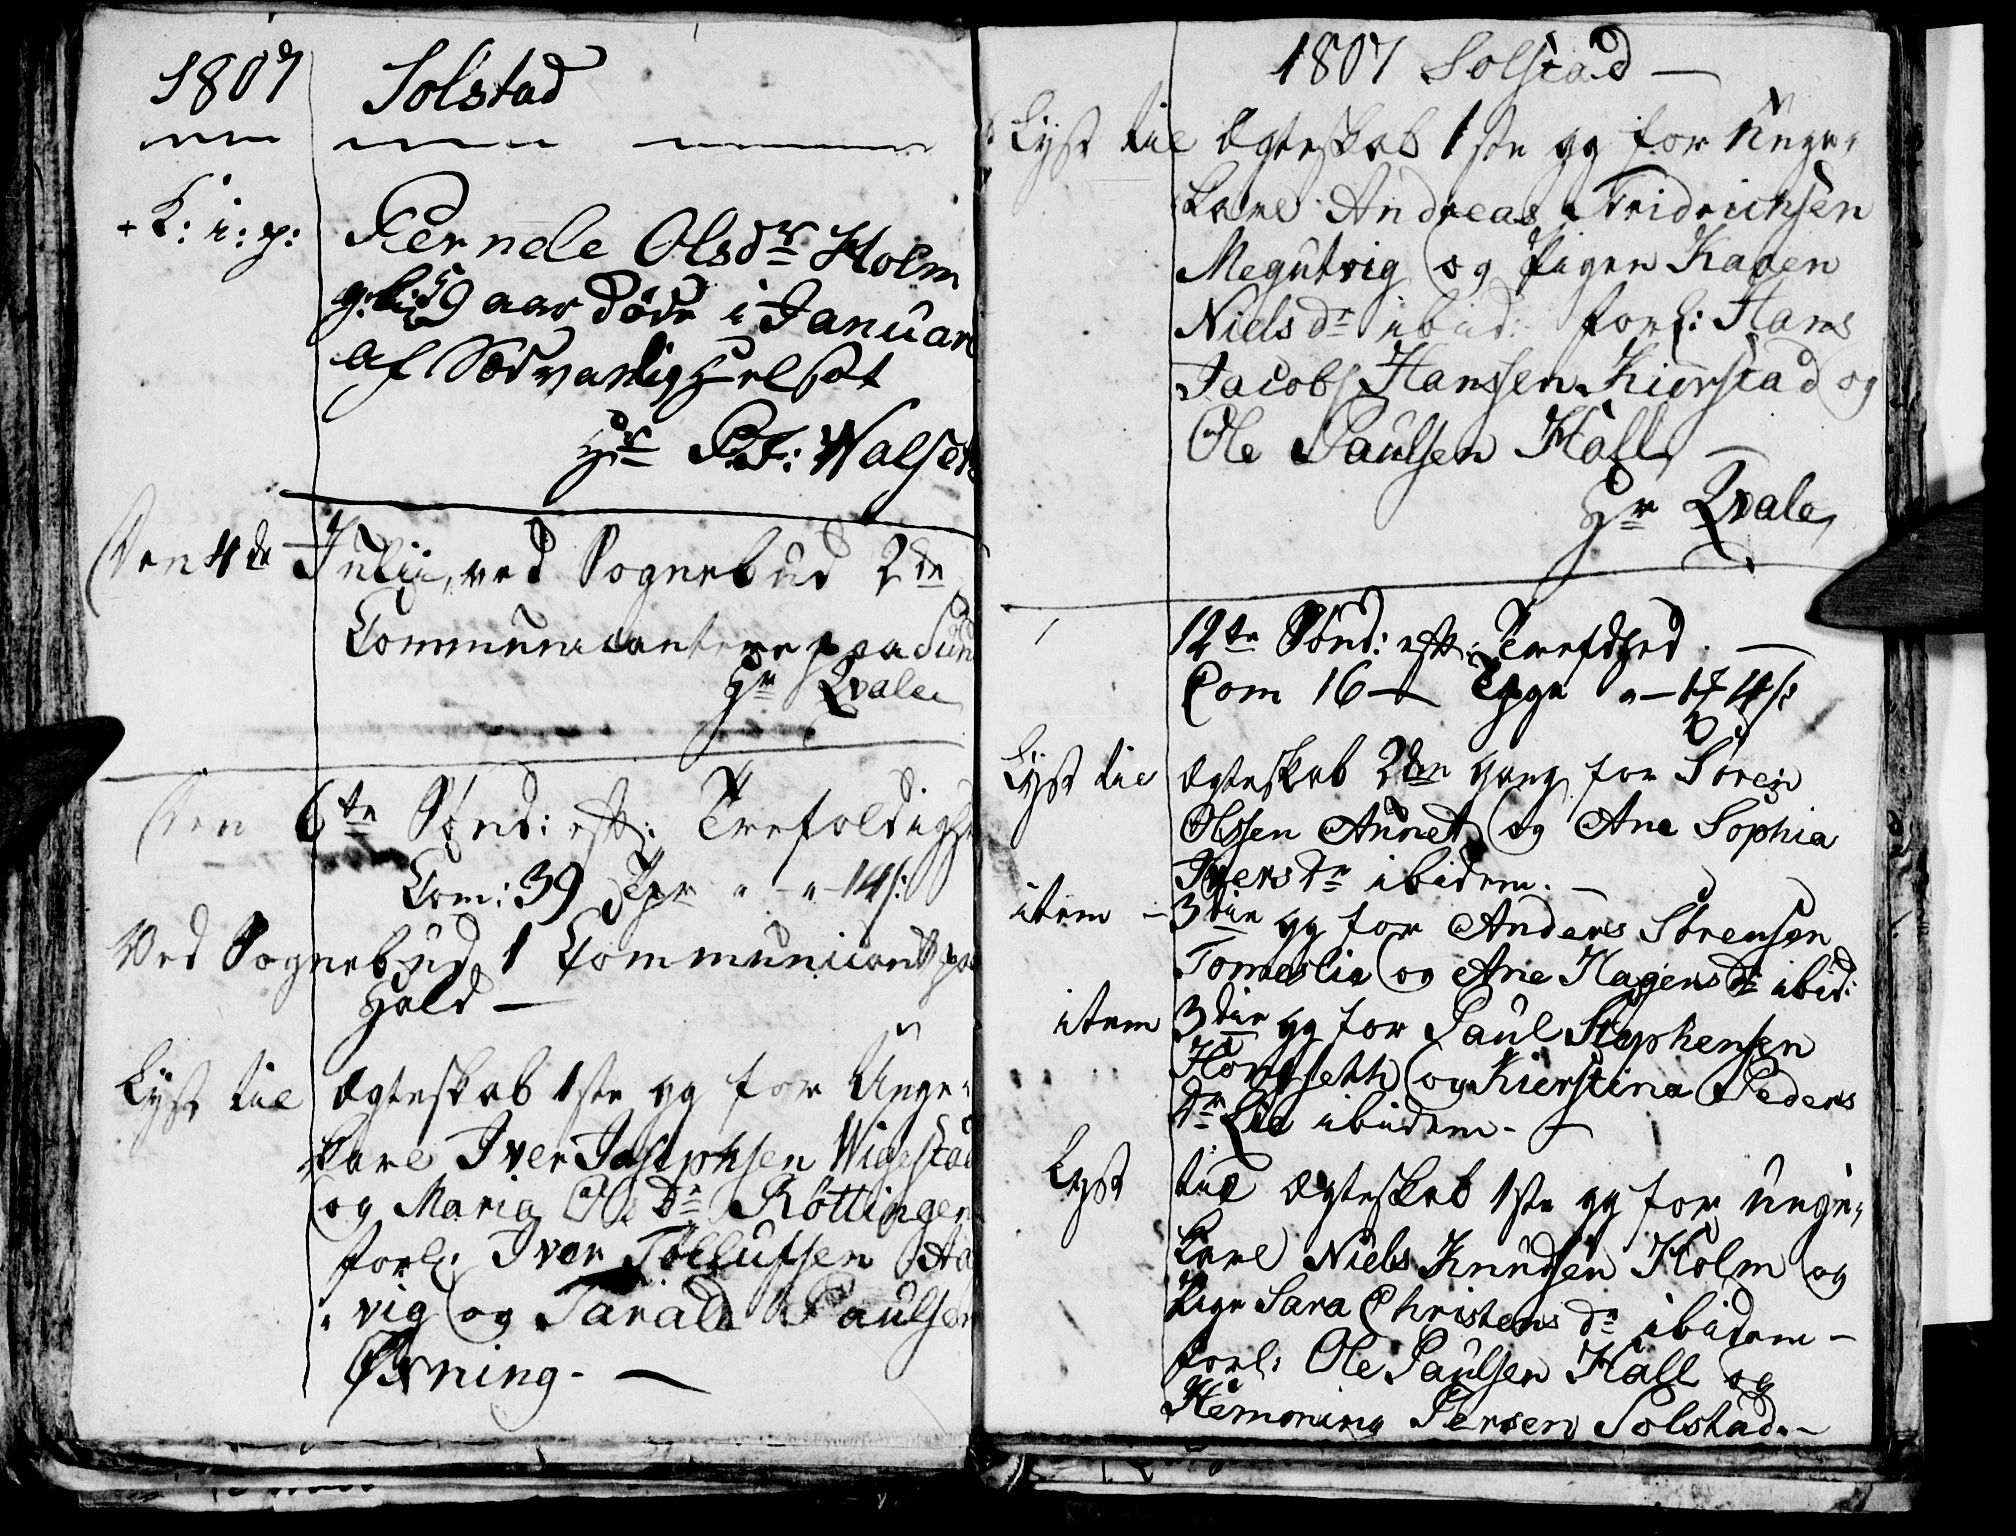 1807 Solstad
+ K: i: p: Pernele Olsdr Holm
g: 59 aar døde i Januar
af Sædvanlig
Hr P: J: Walset
Den 4de Julii, ved Sognebud 2de
Communicantere paa Sund
Hr Qvale
Den 6te Sønd: eft: Trefoldighe
Com: 39 Tpr " - " - 14 s:
Ved Sognebud 1 Communicant paa
Hald —
Lyst til Ægteskab 1ste gg for Unge-
karl Iver Josephsen Wigestad
og Maria Ols Dr Röttingen
forl: Iver Tollufsen
vig og Tarald Paulsen
Øxning. —
1807 Solstad —
Lyst til Ægteskab 1ste gg for Unge-
karl Andreas Fridrichsen
Megutvig og Pigen Karen
Niels dr ibid: forl: Hans
Jacob Hanssen Kierstad og
Ole Paulsen Hall —
Hr Qvale
12te Sønd: eft: Trefdhed. —
Com 16 — Tpge " — 17 14 s:
Lyst til Ægteskab 2den Gang for Sören
Olssen Aunet og Ane Sophia
Ivers dr ibidem. —
item — 3die gg for Anders Sörensen
Tomeslia og Ane Hagens dr ibid:
item 3die gg for Paul Stephensen
Hongseth og Kierstina Peders
dr Lie ibidem. —
Lyst til Ægteskab 1ste gg for Unge-
karl Niels Knudsen Holm og
Pige Sara Christens dr ibidem —
forl: Ole Paulsen Hall og
Hemming Persen Solstad. —